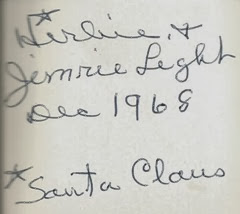 *Herbie &
Jimmie Light
Dec 1968
*Santa Claus